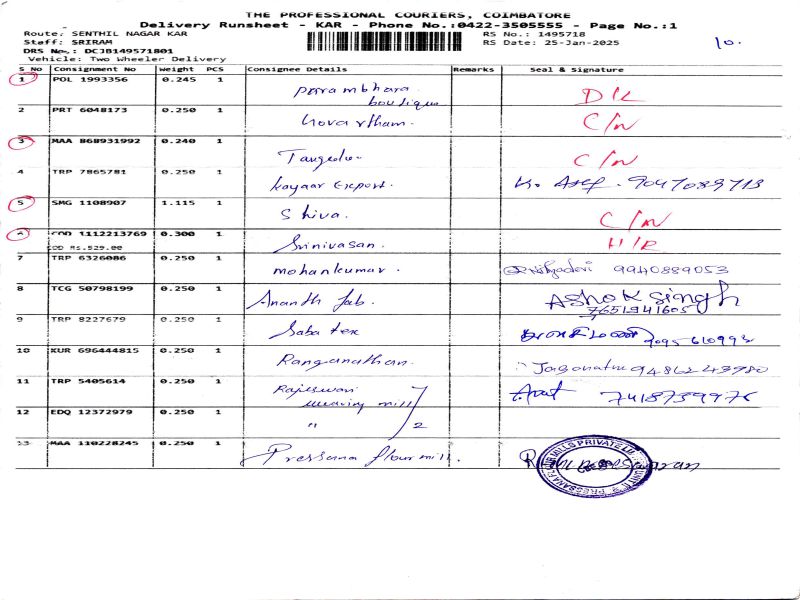 THE PROFESSIONAL COURIERS, COIMBATORE
Delivery Runsheet - KAR - Phone No.:0422-3505555 - Page No.:1
Route: SENTHIL NAGAR KAR
RS No.: 1495718
Staff: SRIRAM
RS Date: 25-Jan-2025
10.
DRS No.: DCJB149571801
Vehicle: Two Wheeler Delivery
S No Consignment No Weight PCS Consignee Details Remarks Seal & Signature
1 POL 1993356 0.245 1 parambhara boutique D/L
2 PRT 6048173 0.250 1 C/N
3 MAA 868931992 0.240 1 Tangedco C/N
4 TRP 7865781 0.250 1 Kayaar Export. K. Asif. 9047089713
5 SMG 1108907 1.115 1 Shiva. C/N
6 COD 1112213769 0.300 1 Srinivasan. H/R
COD Rs.529.00
7 TRP 6326086 0.250 1 mohankumar. 9940889053
8 TCG 50798199 0.250 1 Ananth fab. Ashok Singh
7651941605
9 TRP 8227679 0.250 1 Saba tex
10 KUR 696444815 0.250 1 Ranganathan. 9486243980
11 TRP 5405614 0.250 1 Rajeswari weaving mill 7418739976
12 EDQ 12372979 0.250 1 " 2
13 MAA 110228245 0.250 1 Pressana flour mill.